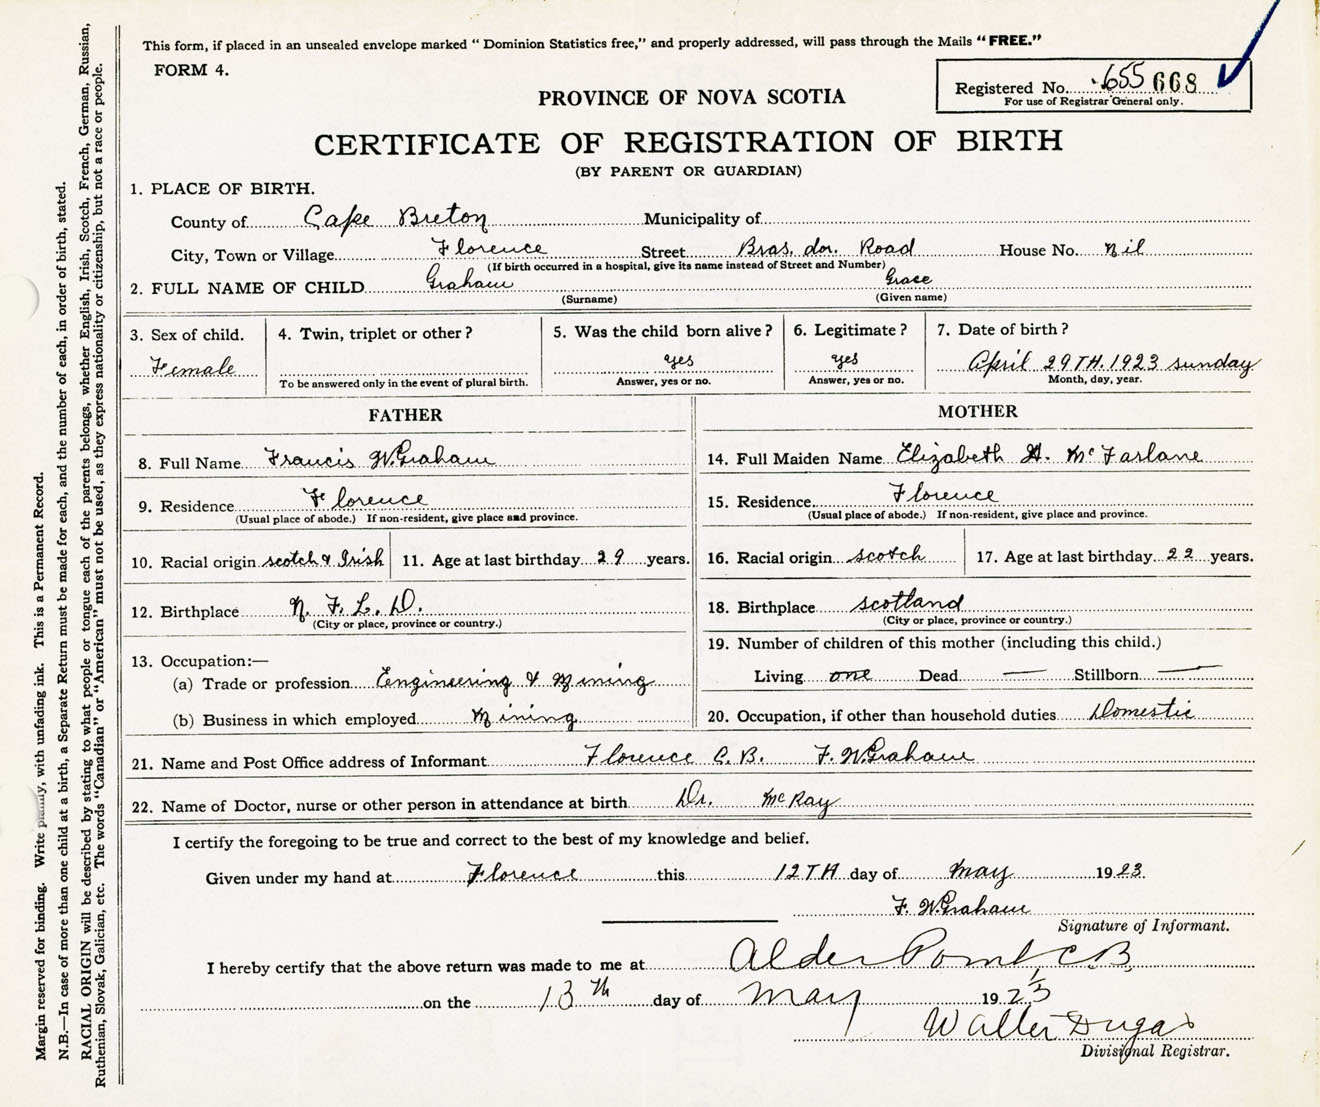 This form, if placed in an unsealed envelope marked " Dominion Statistics free," and properly addressed, will pass through the Mails "FREE."
FORM 4.
Registered No. 655 668
For use of Registrar General only.
PROVINCE OF NOVA SCOTIA
CERTIFICATE OF REGISTRATION OF BIRTH
(BY PARENT OR GUARDIAN)
1. PLACE OF BIRTH.
County of Cape Breton Municipality of
City, Town or Village Florence Street Bras. dor. Road House No. Nil
(If birth occurred in a hospital, give its name instead of Street and Number)
2. FULL NAME OF CHILD Graham Grace
(Surname) (Given name)
3. Sex of child. 4. Twin, triplet or other? 5. Was the child born alive? 6. Legitimate? 7. Date of birth?
Female yes yes April 29TH. 1923 sunday
To be answered only in the event of plural birth. Answer, yes or no. Answer, yes or no. Month, day, year.
FATHER MOTHER
8. Full Name Francis W. Graham 14. Full Maiden Name Elizabeth A. McFarlane
9. Residence Florence 15. Residence Florence
(Usual place of abode.) If non-resident, give place and province. (Usual place of abode.) If non-resident, give place and province.
10. Racial origin scotch & Irish 11. Age at last birthday 29 years. 16. Racial origin scotch 17. Age at last birthday 22 years.
12. Birthplace N. F. L. D. 18. Birthplace scotland
(City or place, province or country.) (City or place, province or country.)
13. Occupation:— 19. Number of children of this mother (including this child.)
(a) Trade or profession Engineering & Mining Living one Dead — Stillborn —
(b) Business in which employed Mining 20. Occupation, if other than household duties Domestic
21. Name and Post Office address of Informant Florence C. B. F. W. Graham
22. Name of Doctor, nurse or other person in attendance at birth Dr. McRay
I certify the foregoing to be true and correct to the best of my knowledge and belief.
Given under my hand at Florence this 12TH day of May 1923
F. W. Graham
Signature of Informant.
I hereby certify that the above return was made to me at Alder Point C B
on the 13th day of May 1923
Walter Dugas
Divisional Registrar.
Margin reserved for binding. Write plainly, with unfading ink. This is a Permanent Record.
N.B.—In case of more than one child at a birth, a Separate Return must be made for each, and the number of each, in order of birth, stated.
RACIAL ORIGIN will be described by stating to what people or tongue each of the parents belongs, whether English, Irish, Scotch, French, German, Russian,
Ruthenian, Slovak, Galician, etc. The words "Canadian" or "American" must not be used, as they express nationality or citizenship, but not a race or people.